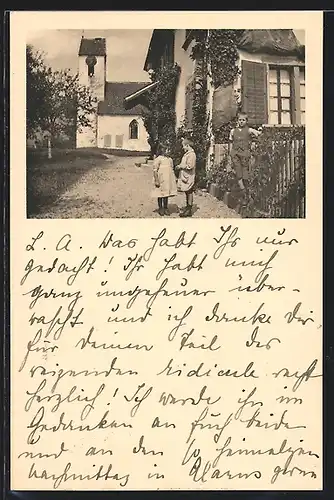 L. A. Was habt Ihr nur
gedacht! Ihr habt mich
ganz ungeheuer über-
rascht und ich danke Dir
für Deinen Teil des
reizenden Ridicule recht
herzlich! Ich werde ihn im
Gedanken an Euch beide
und an den so heimeligen
Nachmittag in Glarus gern